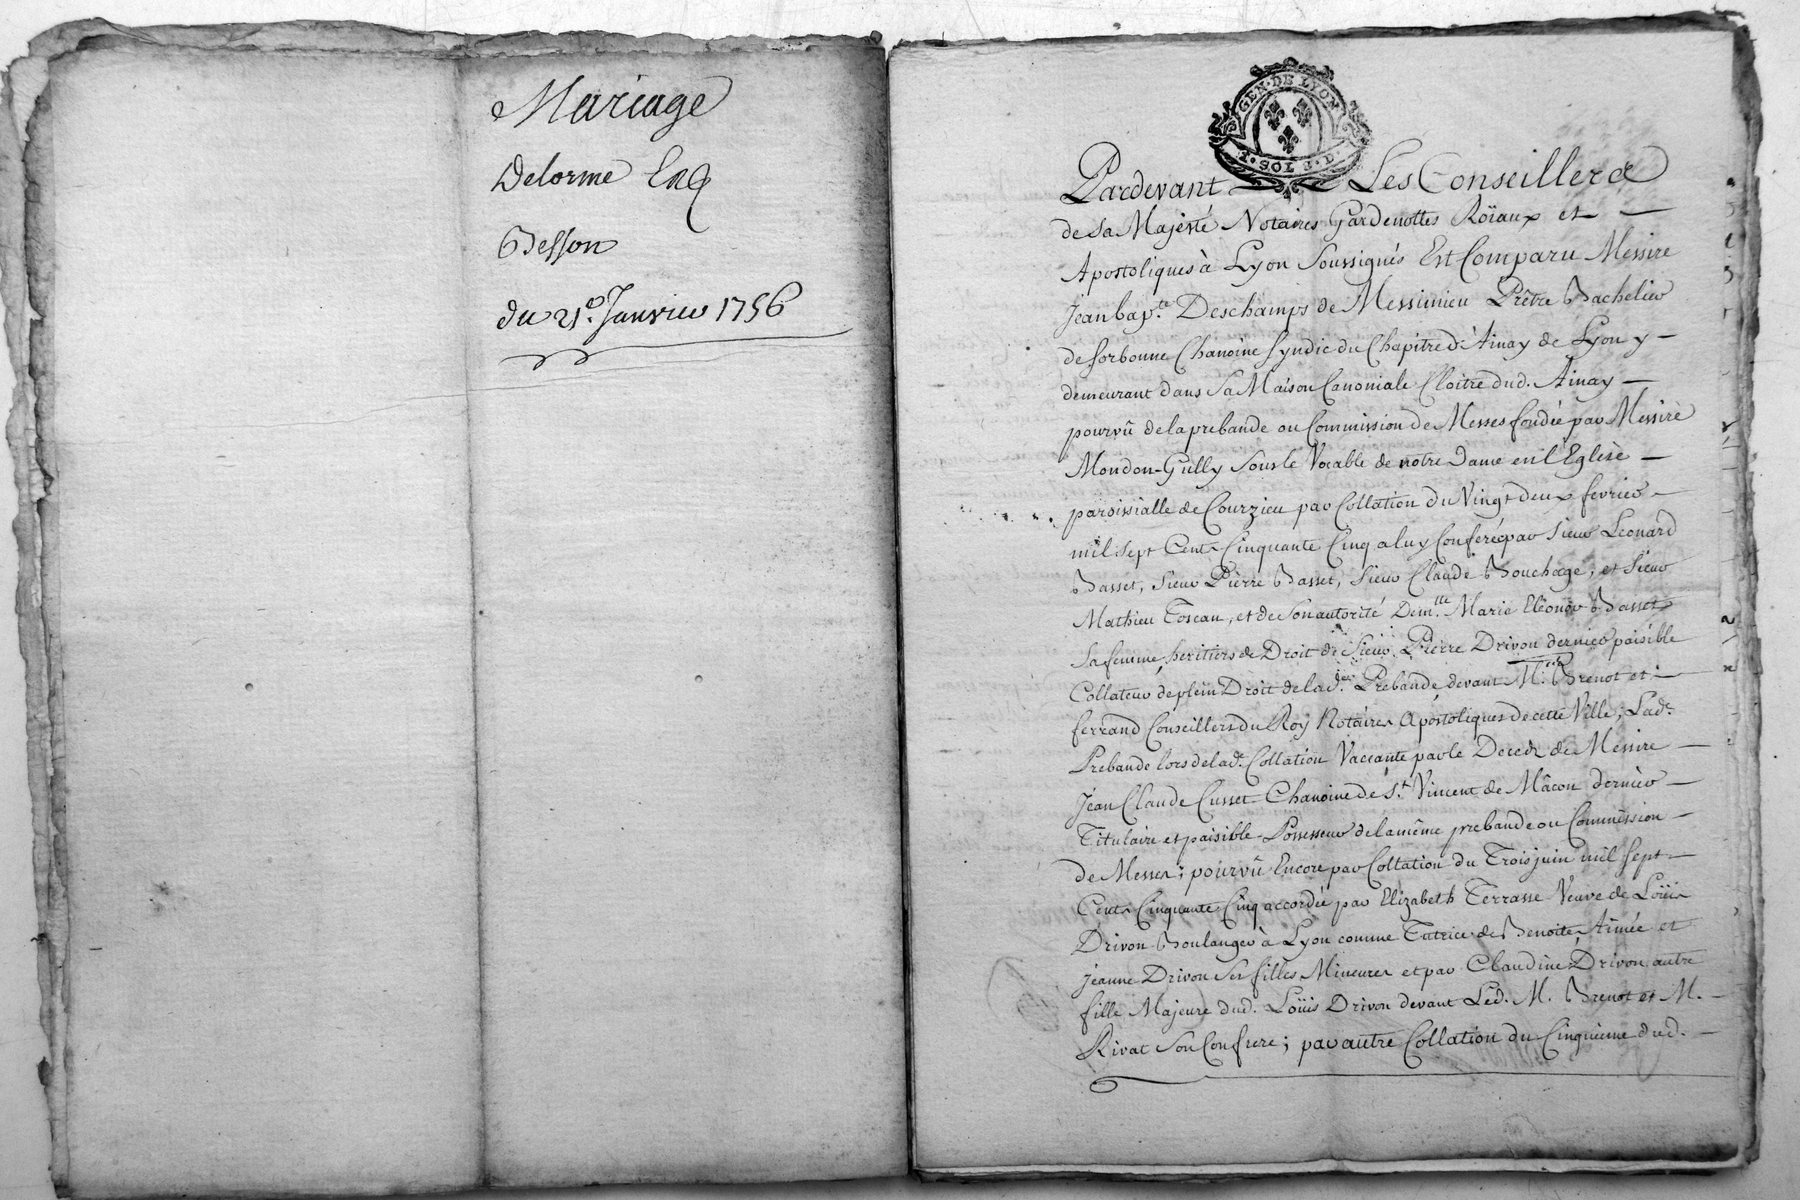 Mariage
Delorme Et
Besson
du 21e. Janvier 1756
GEN·DE LYON
2·SOLS·D
Pardevant Les Conseillers
de Sa Majesté Notaires Gardenottes Roïaux et
Apostoliques à Lyon Soussignés Est Comparu Messire
Jean bapte. Deschamps de Messimieu Prêtre Bachelier
de Sorbonne Chanoine Syndic du Chapitre d'Ainay de Lyon y
demeurant dans Sa Maison Canoniale Cloitre dud. Ainay
pourvû de la prebande ou Commission de Messes fondée par Messire
Mondon Gully Sous le Vocable de notre Dame en l'Eglise
paroissialle de Courzieu par Collation du Vingt deux fevrier
mil Sept Cents Cinquante Cinq a luy Conferée par Sieur Leonard
Basset, Sieur Pierre Basset, Sieur Claude Bouchage, et Sieur
Mathieu Toscan, et de Son autorité Demlle. Marie Eléonor Basset
Sa femme, heritiers de Droit de Sieur Pierre Drivon dernier paisible
Collateur de plein Droit de lad. Prebande, devant Mes. Brenot et
ferrand Conseillers du Roy Notaires Apostoliques de cette Ville; Lade.
Prebande lors de lade. Collation Vaccante par le Decedz de Messire
Jean Claude Cusset Chanoine de St. Vincent de Mâcon dernier
Titulaire et paisible Possesseur de la même prebande ou Commission
de Messes; pourvû Encore par Collation du Trois juin mil Sept
Cents Cinquante Cinq accordée par Elizabeth Terrasse Veuve de Loüis
Drivon Boulanger à Lyon comme Tutrice de Benoite, Aimée et
jeanne Drivon Ses filles Mineures et par Claudine Drivon autre
fille Majeure dud. Loüis Drivon devant Led. M. Brenot et M.
Rivat Son Confrere; par autre Collation du Cinquieme dud.